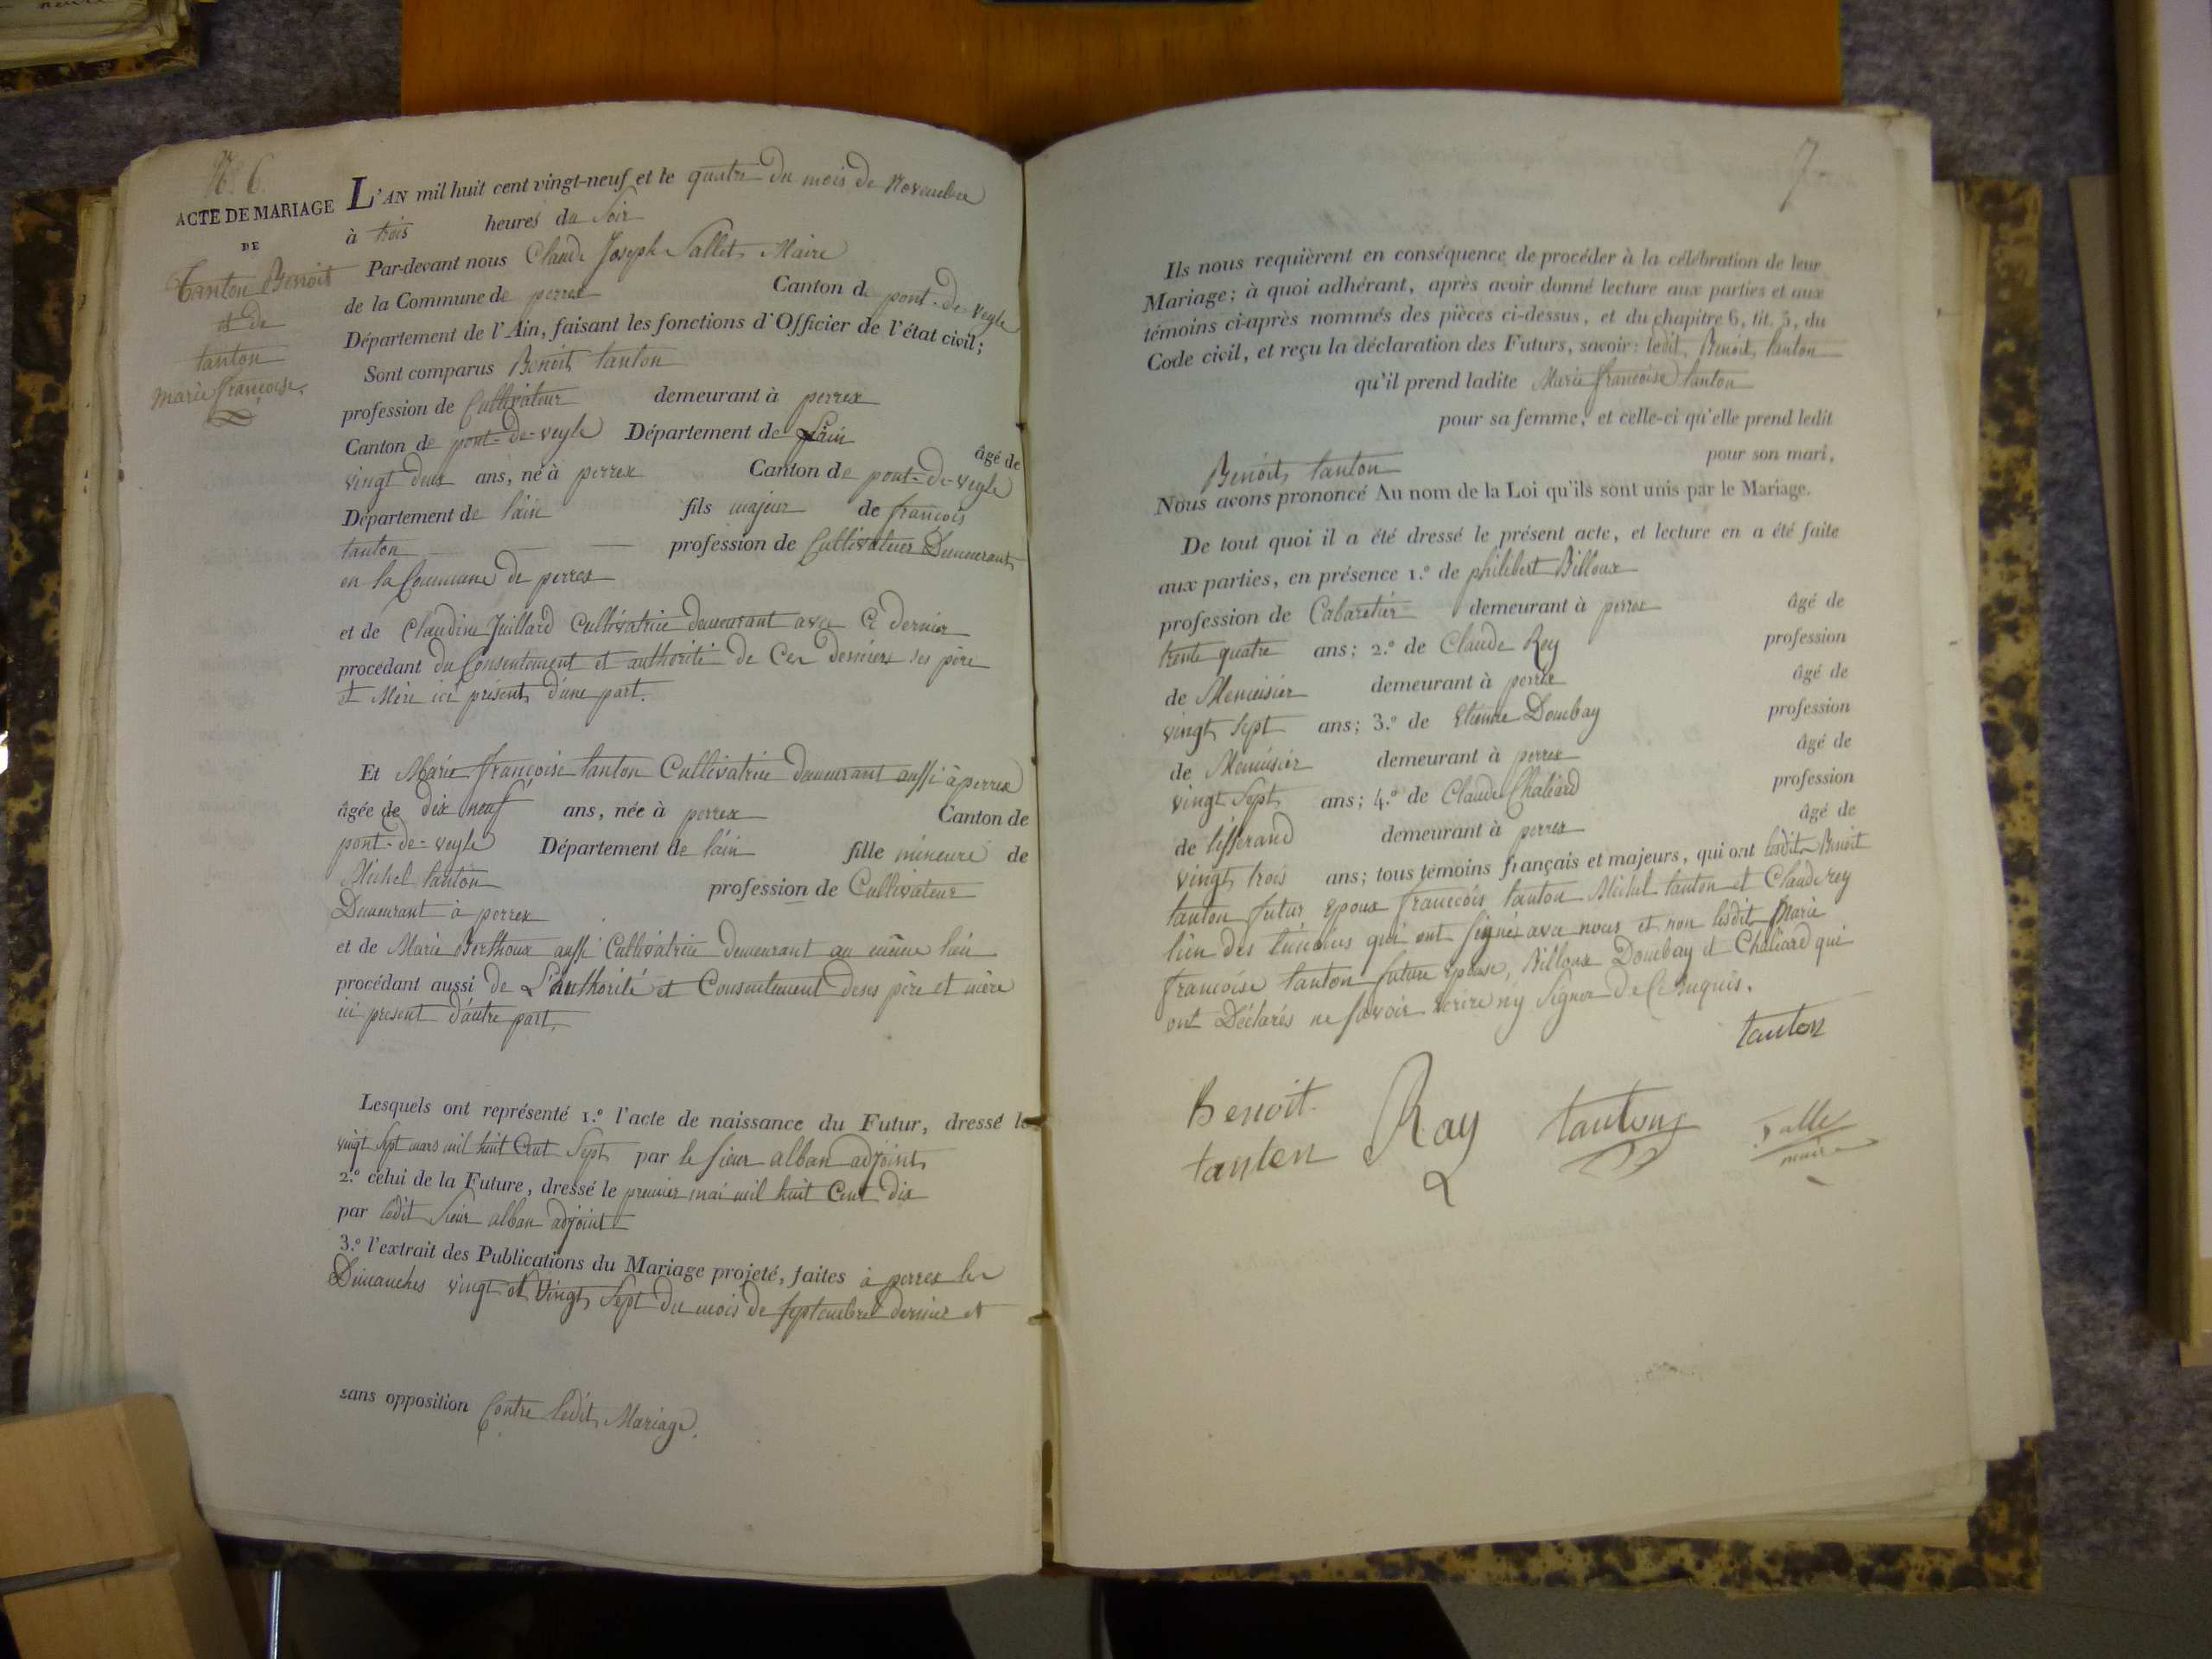 N.° 6.
ACTE DE MARIAGE
DE
Tanton Benoit
et de
tanton
marie françoise.
L'AN mil huit cent vingt-neuf et le quatre du mois de Novembre
à trois heures du Soir
Par-devant nous Claude Joseph Sallet Maire
de la Commune de perrex Canton de pont-de-veyle
Département de l'Ain, faisant les fonctions d'Officier de l'état civil;
Sont comparus Benoit tanton
profession de Cultivateur demeurant à perrex
Canton de pont-de-veyle Département de l'ain âgé de
vingt deux ans, né à perrex Canton de pont-de-veyle
Département de l'ain fils majeur de francois
tanton profession de Cultivateur Demeurant
en la Commune de perrex
et de Claudine Juillard Cultivatrice demeurant avec Ce dernier
procédant du Consentement et authorité de Ces derniers ses père
et Mère ici présents d'une part.
Et Marie françoise tanton Cultivatrice demeurant aussi à perrex
âgée de dix neuf ans, née à perrex Canton de
pont-de-veyle Département de l'ain fille mineure de
Michel tanton profession de Cultivateur
Demeurant à perrex
et de Marie Berthoux aussi Cultivatrice demeurant au même lieu
procédant aussi de L'authorité et Consentement de ses père et mère
ici present d'autre part.
Lesquels ont représenté 1.° l'acte de naissance du Futur, dressé le
vingt sept mars mil huit Cent Sept par le sieur alban adjoint
2.° celui de la Future, dressé le premier mai mil huit Cent dix
par ledit Sieur alban adjoint
3.° l'extrait des Publications du Mariage projeté, faites à perrex les
Dimanches vingt et vingt Sept du mois de septembre dernier et
sans opposition Contre ledit Mariage.
7
Ils nous requièrent en conséquence de procéder à la célébration de leur
Mariage; à quoi adhérant, après avoir donné lecture aux parties et aux
témoins ci-après nommés des pièces ci-dessus, et du chapitre 6, tit. 5, du
Code civil, et reçu la déclaration des Futurs, savoir: ledit Benoit tanton
qu'il prend ladite Marie francoise tanton
pour sa femme, et celle-ci qu'elle prend ledit
Benoit tanton pour son mari,
Nous avons prononcé Au nom de la Loi qu'ils sont unis par le Mariage.
De tout quoi il a été dressé le présent acte, et lecture en a été faite
aux parties, en présence 1.° de philibert Billoux
profession de Cabaretier demeurant à perrex âgé de
trente quatre ans; 2.° de Claude Rey profession
de Menuisier demeurant à perrex âgé de
vingt sept ans; 3.° de Etienne Dombay profession
de Menuisier demeurant à perrex âgé de
vingt sept ans; 4.° de Claude Chaliard profession
de tisserand demeurant à perrex âgé de
vingt trois ans; tous témoins français et majeurs, qui ont lesdits Benoit
tanton futur Epoux francois tanton Michel tanton et Claude rey
l'un des témoins qui ont signés avec nous et non lesdit Marie
francoise tanton future Epouse, Billoux Dombay et Chaliard qui
ont Déclarés ne savoir écrire ny signer de Ce Enquis.
tanton
Benoit
tanten
Ray
tanton
Salle
maire